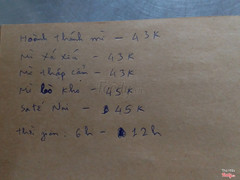 Hoành thánh mì - 43K
Mì xá xíu - 43K
Mì thập cẩm - 43K
Mì bò khô - 45K
Saté Nai - 45K
Thời gian: 6h - 12h